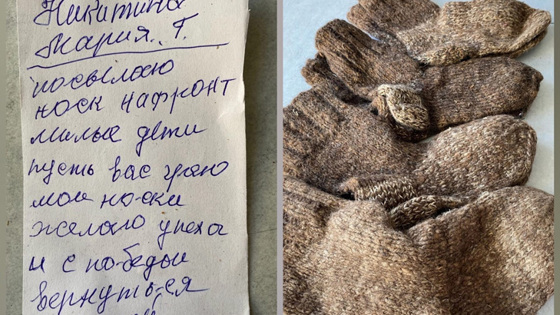 Никитина
Мария. Т.
посылаю
носк на фронт
милые дети
пусть вас греют
мои носки
желаю успеха
и с победы
вернуться